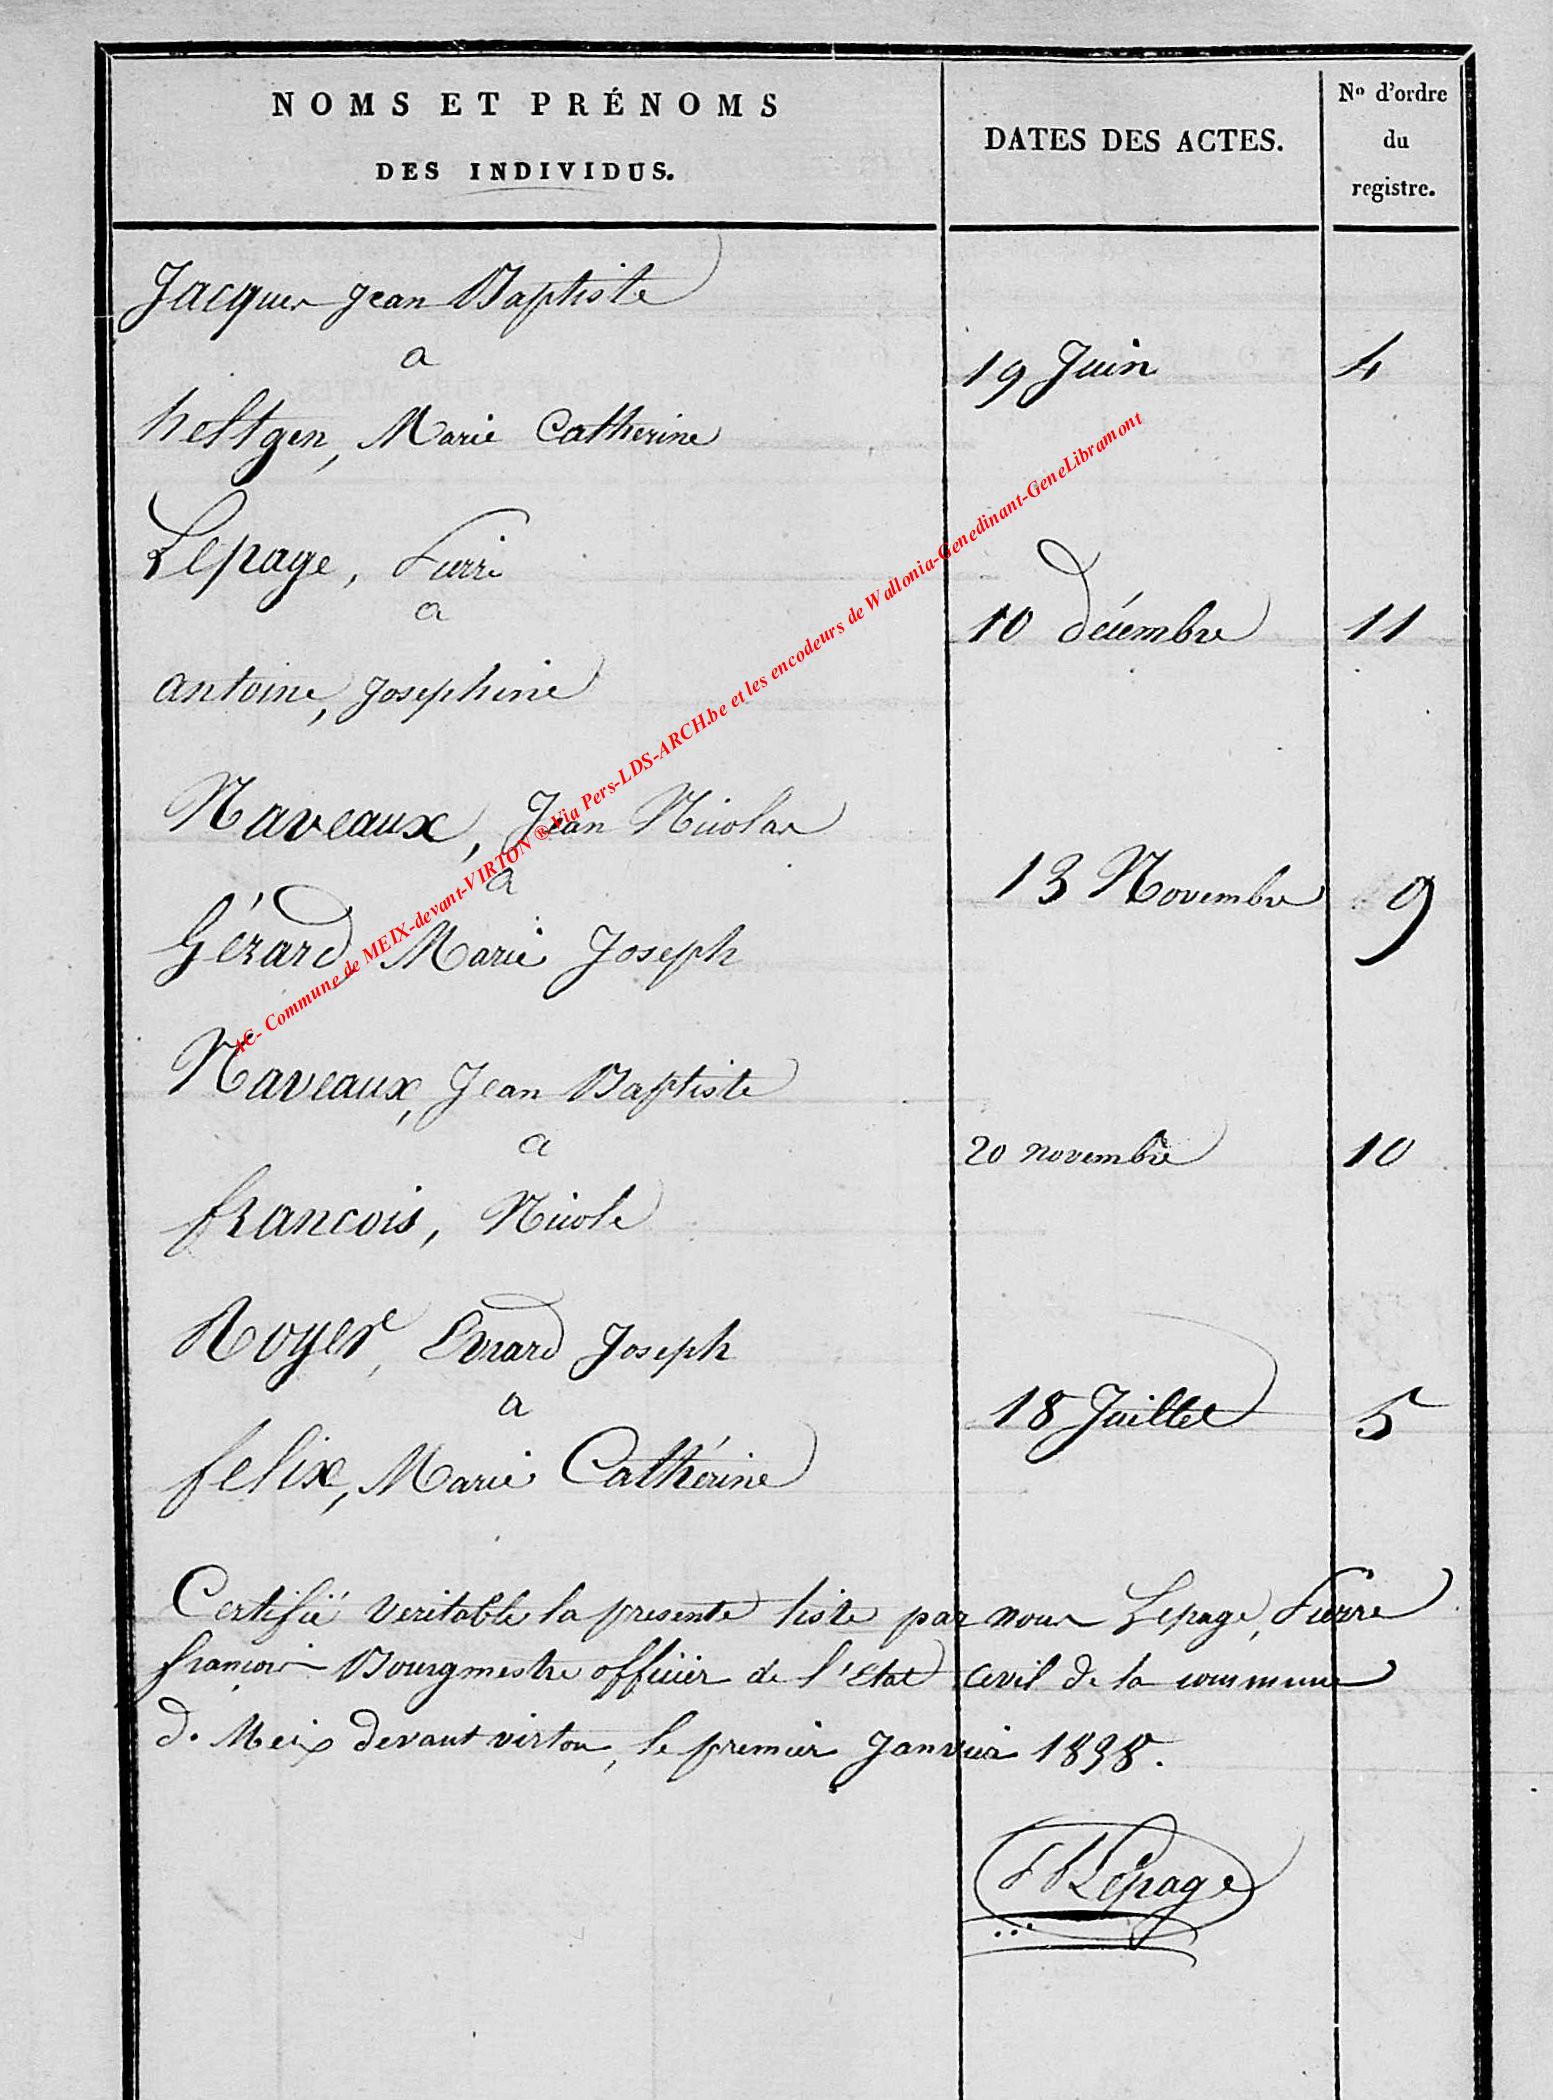 NOMS ET PRÉNOMS
DES INDIVIDUS.
DATES DES ACTES.
No d'ordre
du
registre.
Jacques Jean Baptiste
a
heltgen, Marie Catherine
19 Juin
4
Lepage, Pierre
a
antoine, Josephine
10 décembre
11
Naveaux, Jean Nicolas
a
Gérard Marie Joseph
13 Novembre
9
Naveaux, Jean Baptiste
a
francois, Nicole
20 novembre
10
Royer, Evrard Joseph
a
felix, Marie Cathérine
18 Juillet
5
Certifié veritable la presente liste par nous Lepage, Pierre
françois Bourgmestre officier de l'Etat civil de la commune
de Meix devant virton, le premier Janvier 1838.
Lepage
AC- Commune de MEIX-devant-VIRTON ® Via Pers-LDS-ARCH.be et les encodeurs de Wallonia-Genedinant-GeneLibramont